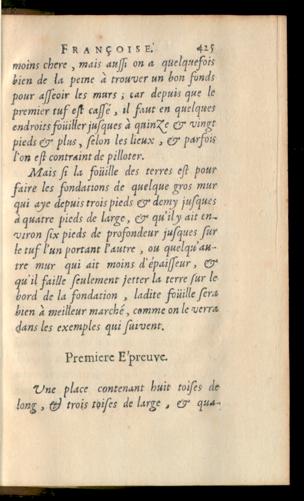 FRANÇOISE. 425
moins chere, mais aussi on a quelquefois
bien de la peine à trouver un bon fonds
pour asseoir les murs; car depuis que le
premier tuf est cassé, il faut en quelques
endroits foüiller jusques à quinze & vingt
pieds & plus, selon les lieux, & parfois
l'on est contraint de pilloter.
Mais si la foüille des terres est pour
faire les fondations de quelque gros mur
qui aye depuis trois pieds & demy jusques
à quatre pieds de large, & qu'il y ait en-
viron six pieds de profondeur jusques sur
le tuf l'un portant l'autre, ou quelqu'au-
tre mur qui ait moins d'épaisseur, &
qu'il faille seulement jetter la terre sur le
bord de la fondation, ladite foüille sera
bien à meilleur marché, comme on le verra
dans les exemples qui suivent.
Premiere E'preuve.
Une place contenant huit toises de
long, & trois toises de large, & qua-